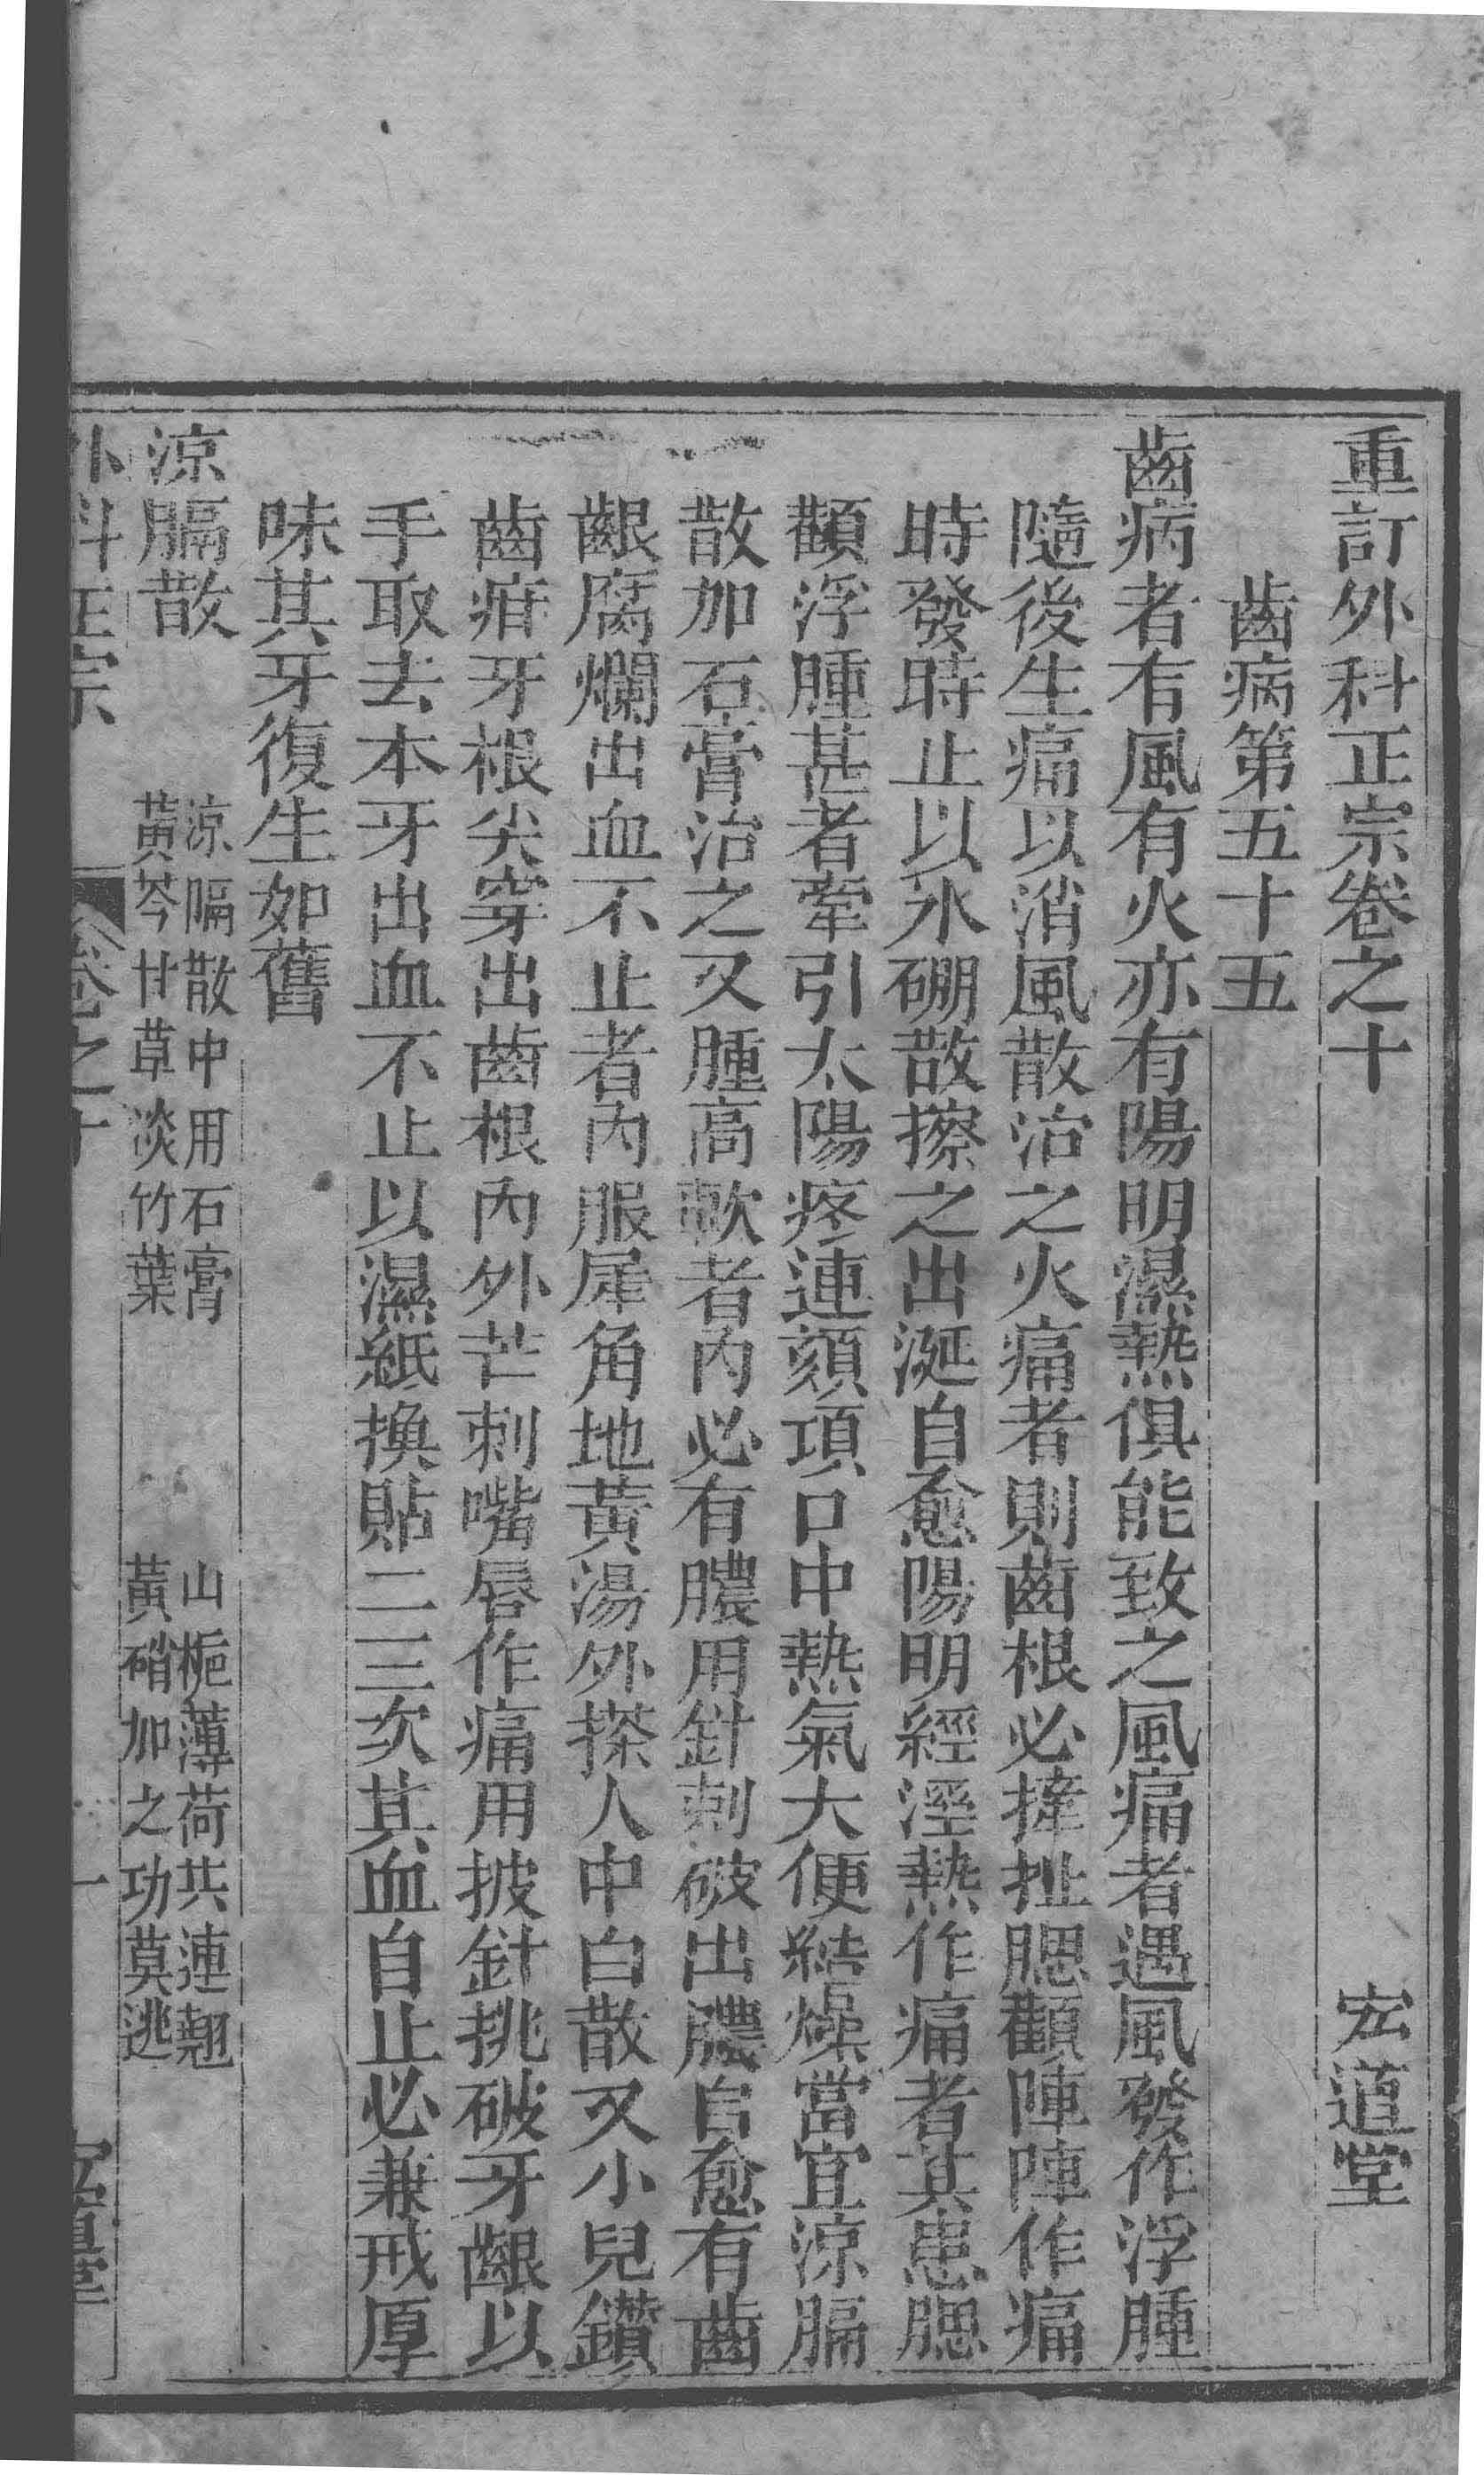 重訂外科正宗卷之十 宏道堂
齒病第五十五
齒病者有風有火亦有陽明濕熱俱能致之風痛者遇風發作浮腫
隨後生痛以消風散治之火痛者則齒根必揵扯腮顴陣陣作痛
時發時止以氷硼散擦之出涎自愈陽明經溼熱作痛者其患腮
顴浮腫甚者牽引太陽疼連頦項口中熱氣大便結燥當宜涼膈
散加石膏治之又腫高軟者內必有膿用針刺破出膿自愈有齒
齦腐爛出血不止者內服犀角地黃湯外搽人中白散又小兒鑽
齒疳牙根尖穿出齒根內外芒刺嘴唇作痛用披針挑破牙齦以
手取去本牙出血不止以濕紙換貼二三次其血自止必兼戒厚
味其牙復生如舊
涼膈散
涼膈散中用石膏 山梔薄荷共連翹
黃芩甘草淡竹葉 黃硝加之功莫逃
外科正宗 卷之十 一 宏道堂